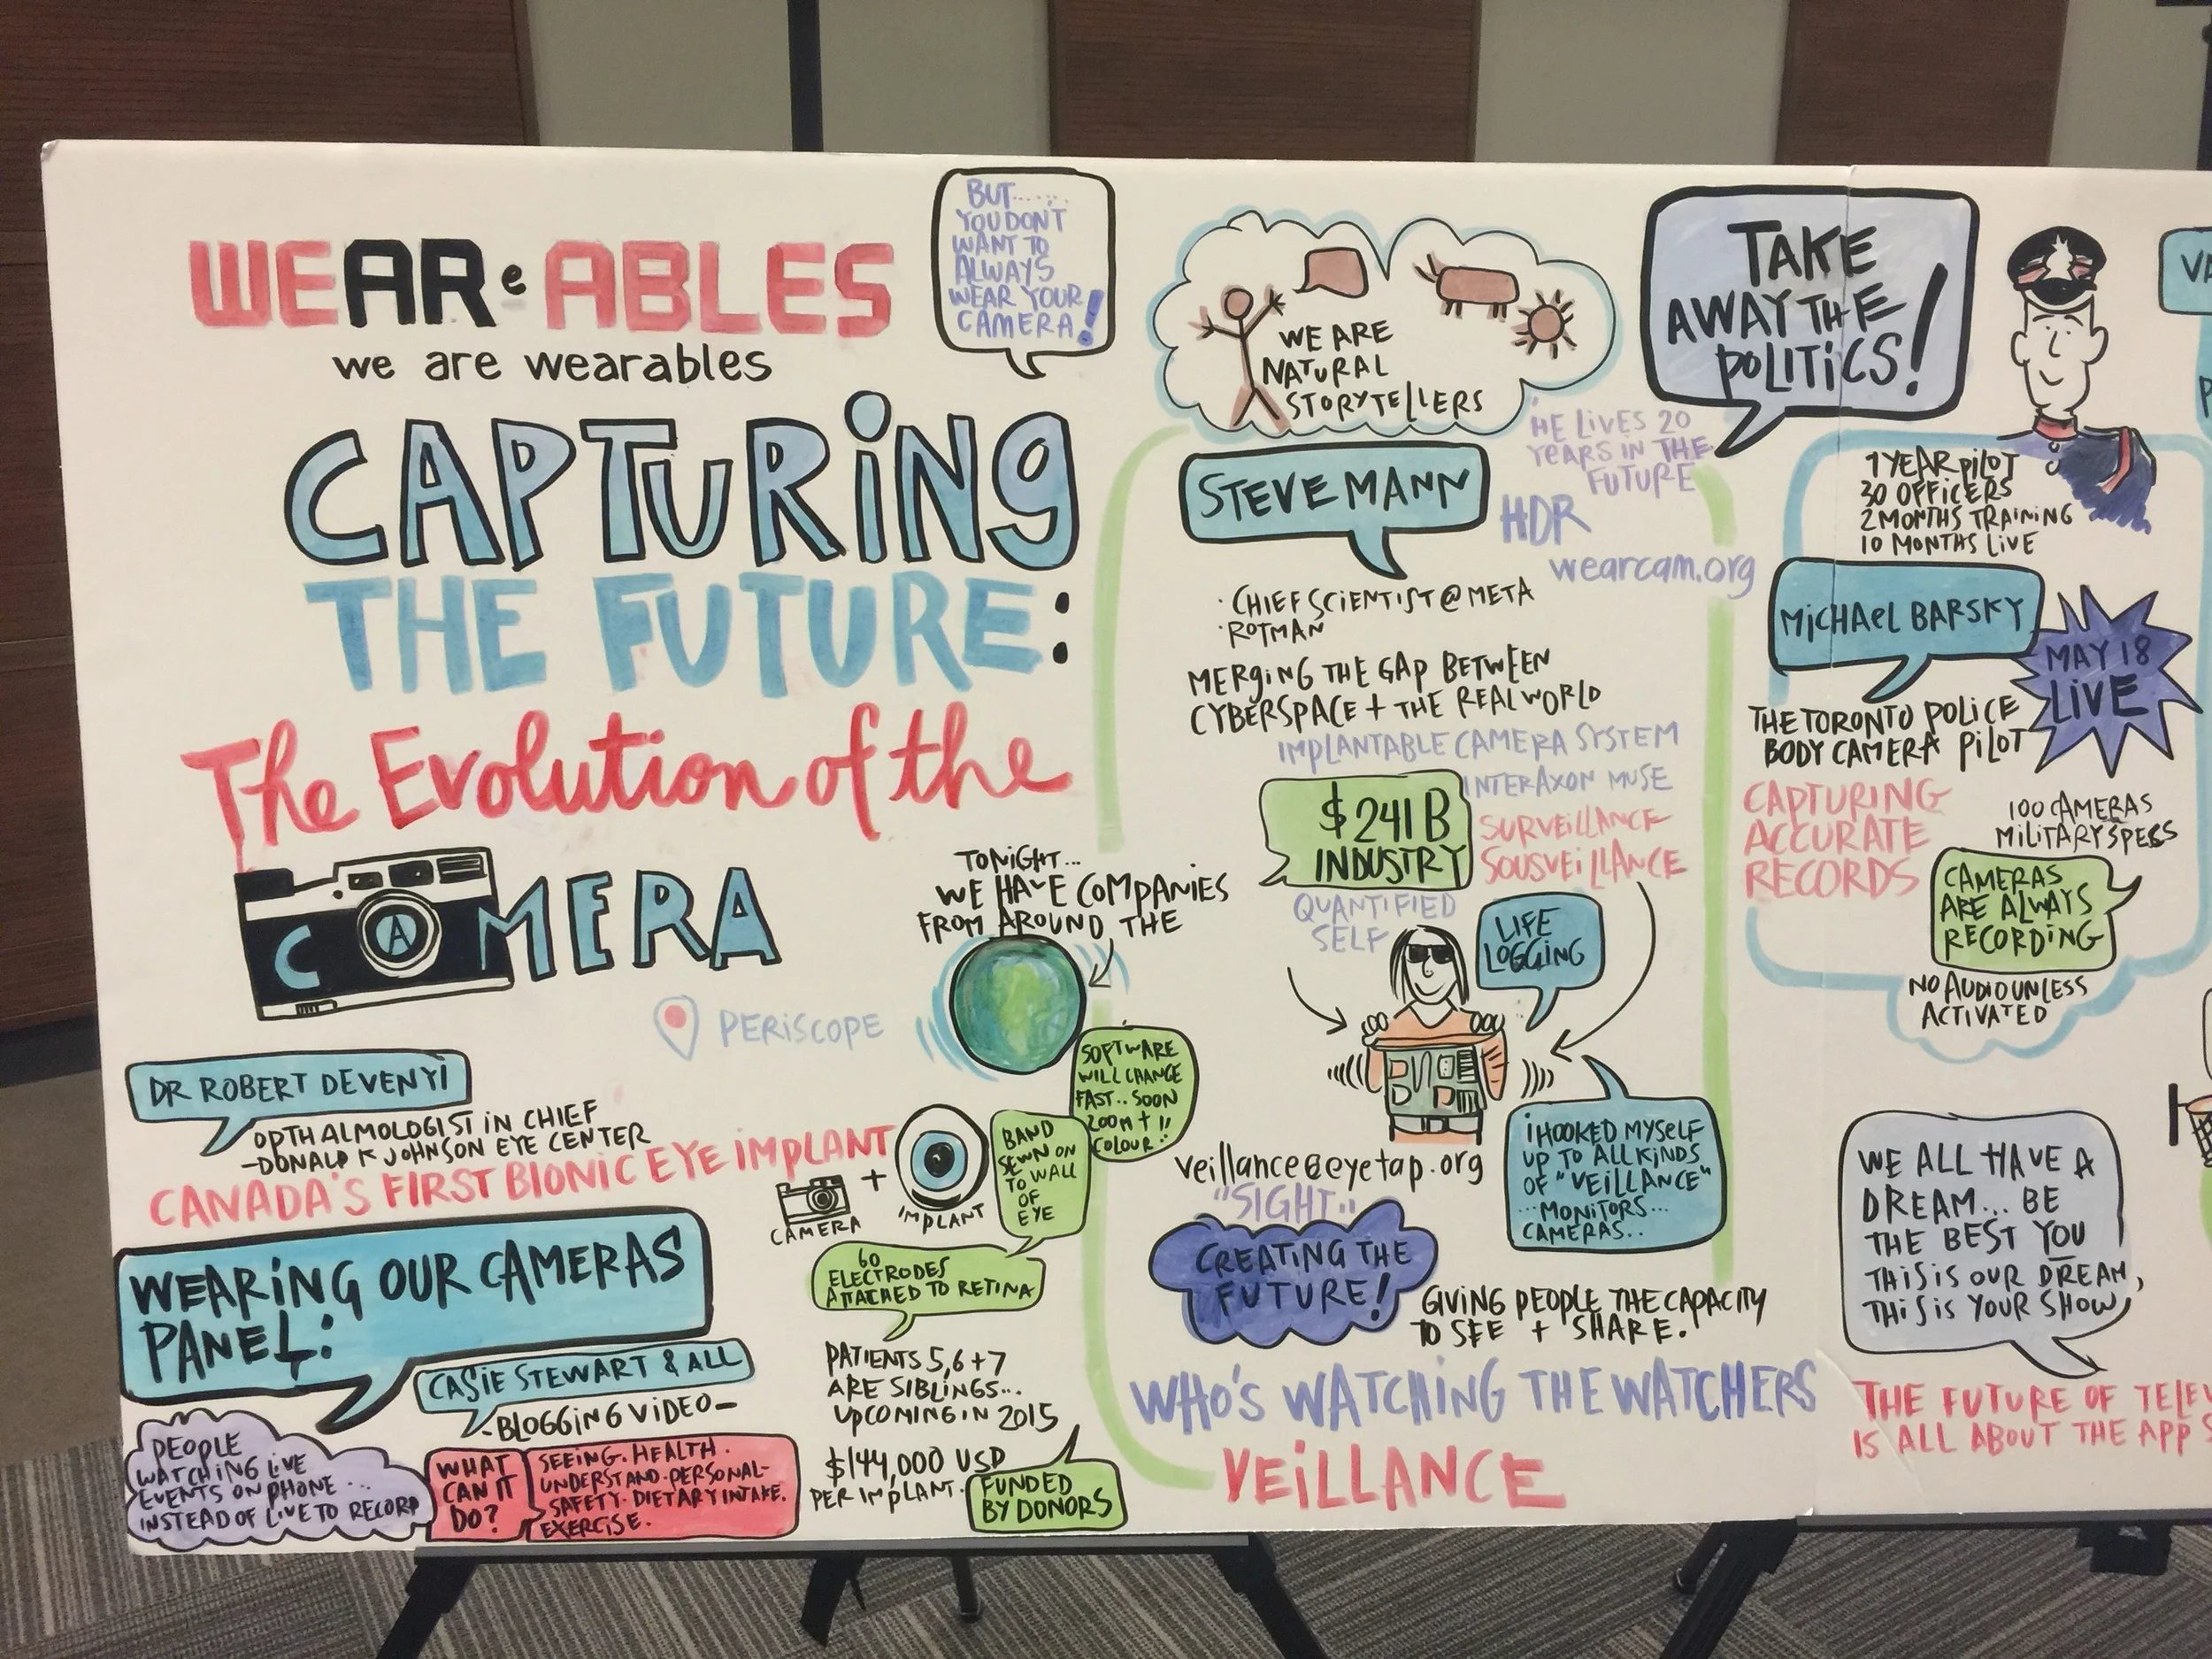 WEAReABLES
we are wearables
BUT......
YOU DON'T
WANT TO
ALWAYS
WEAR YOUR
CAMERA!
CAPTURING
THE FUTURE:
The Evolution of the
CAMERA
TONIGHT...
WE HAVE COMPANIES
FROM AROUND THE
PERISCOPE
DR ROBERT DEVENYI
OPTHALMOLOGIST IN CHIEF
-DONALD K JOHNSON EYE CENTER
CANADA'S FIRST BIONIC EYE IMPLANT
CAMERA
+
IMPLANT
SOFTWARE
WILL CHANGE
FAST.. SOON
ZOOM + !!
COLOUR..
BAND
SEWN ON
TO WALL
OF
EYE
60
ELECTRODES
ATTACHED TO RETINA
PATIENTS 5, 6 + 7
ARE SIBLINGS...
UPCOMING IN 2015
$144,000 USD
PER IMPLANT.
FUNDED
BY DONORS
WEARING OUR CAMERAS
PANEL:
CASIE STEWART & ALL
-BLOGGING VIDEO-
PEOPLE
WATCHING LIVE
EVENTS ON PHONE...
INSTEAD OF LIVE TO RECORD
WHAT
CAN IT
DO?
SEEING. HEALTH.
UNDERSTAND. PERSONAL-
SAFETY. DIETARY INTAKE.
EXERCISE.
WE ARE
NATURAL
STORYTELLERS
STEVE MANN
'HE LIVES 20
YEARS IN THE
FUTURE
HDR
wearcam.org
· CHIEF SCIENTIST @ META
· ROTMAN
MERGING THE GAP BETWEEN
CYBERSPACE + THE REAL WORLD
IMPLANTABLE CAMERA SYSTEM
INTERAXON MUSE
$241B
INDUSTRY
SURVEILLANCE
SOUSVEILLANCE
QUANTIFIED
SELF
LIFE
LOGGING
veillance@eyetap.org
"SIGHT..
I HOOKED MYSELF
UP TO ALL KINDS
OF "VEILLANCE"
...MONITORS...
CAMERAS..
CREATING THE
FUTURE!
GIVING PEOPLE THE CAPACITY
TO SEE + SHARE.
WHO'S WATCHING THE WATCHERS
VEILLANCE
TAKE
AWAY THE
POLITICS!
1 YEAR PILOT
30 OFFICERS
2 MONTHS TRAINING
10 MONTHS LIVE
MICHAEL BARSKY
MAY 18
LIVE
THE TORONTO POLICE
BODY CAMERA PILOT
CAPTURING
ACCURATE
RECORDS
100 CAMERAS
MILITARY SPECS
CAMERAS
ARE ALWAYS
RECORDING
NO AUDIO UNLESS
ACTIVATED
WE ALL HAVE A
DREAM... BE
THE BEST YOU
THIS IS OUR DREAM,
THIS IS YOUR SHOW,
THE FUTURE OF TELEV
IS ALL ABOUT THE APPS
VA